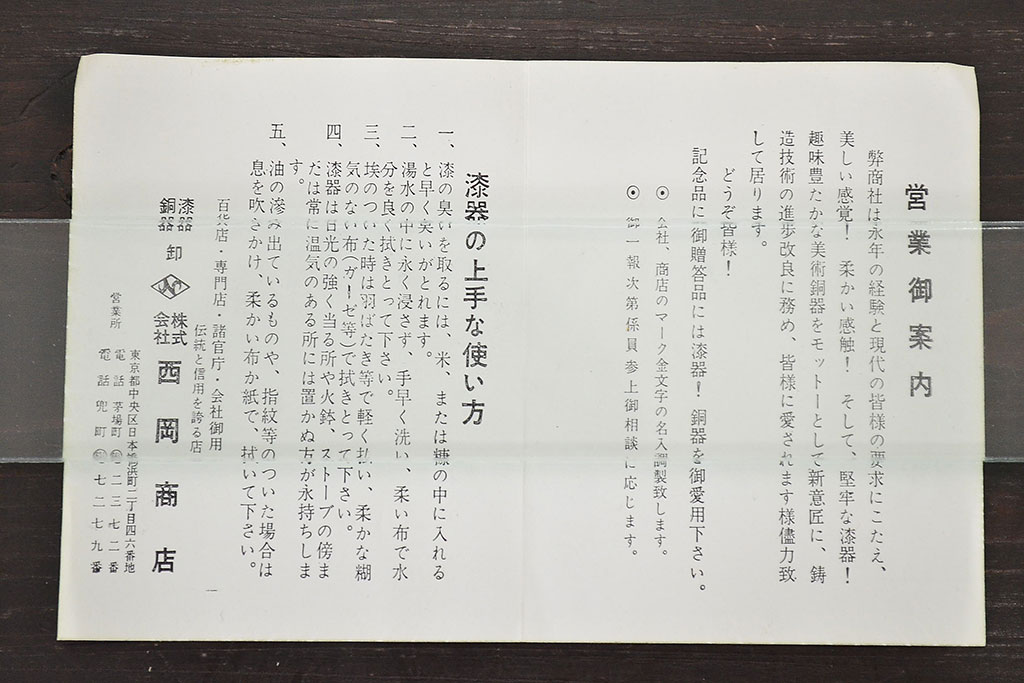 営業御案内
弊商社は永年の経験と現代の皆様の要求にこたえ、
美しい感覚! 柔かい感触! そして、堅牢な漆器!
趣味豊たかな美術銅器をモットーとして新意匠に、鋳
造技術の進歩改良に務め、皆様に愛されます様儘力致
して居ります。
どうぞ皆様!
記念品に御贈答品には漆器! 銅器を御愛用下さい。
⦿ 会社、商店のマーク金文字の名入調製致します。
⦿ 御一報次第係員参上御相談に応じます。
漆器の上手な使い方
一、漆の臭いを取るには、米、または糠の中に入れる
と早く臭いがとれます。
二、湯水の中に永く浸さず、手早く洗い、柔い布で水
分を良く拭きとって下さい。
三、埃のついた時は羽ばたき等で軽く払い、柔かな糊
気のない布(ガーゼ等)で拭きとって下さい。
四、漆器は日光の強く当る所や火鉢、ストーブの傍ま
だは常に温気のある所には置かぬ方が永持ちしま
す。
五、油の滲み出ているものや、指紋等のついた場合は
息を吹きかけ、柔かい布か紙で、拭いて下さい。
百化店・専門店・諸官庁・会社御用
伝統と信用を誇る店
漆器
銅器 卸
株式
会社 西岡商店
営業所
東京都中央区日本橋浜町二丁目四六番地
電話 茅場町 二三七二番
電話 兜町 七二七九番